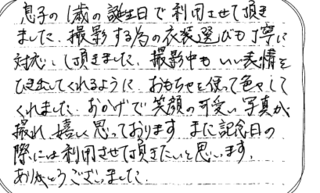 息子の1歳の誕生日で利用させて頂き
ました。撮影する為の衣装選びも丁寧に
対応して頂きました。撮影中もいい表情を
ひき出してくれるように、おもちゃを使って色々して
くれました。おかげで笑顔の可愛い写真が
撮れ嬉しく思っております。また記念日の
際には利用させて頂きたいと思います。
ありがとうございました。